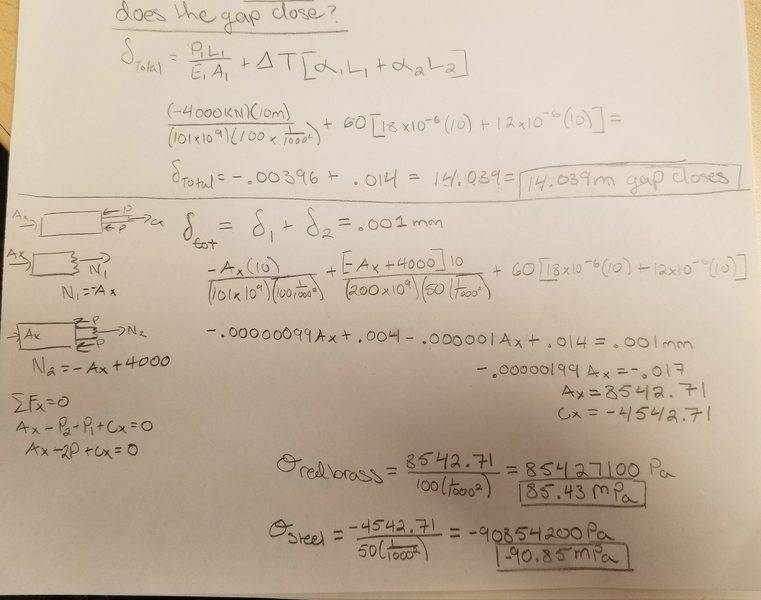 does the gap close?
δ_Total = P₁L₁/E₁A₁ + ΔT[α₁L₁ + α₂L₂]
(-4000KN)(10m)/(101x10⁹)(100 x 1/1000²) + 60[18x10⁻⁶(10) + 12x10⁻⁶(10)] =
δ_Total = -.00396 + .014 = 14.039 = 14.039m gap closes
Ax P P Cx
δ_tot = δ₁ + δ₂ = .001 mm
Ax N₁
N₁ = -Ax
-Ax(10)/(101x10⁹)(100 1/1000²) + [-Ax+4000]10/(200x10⁹)(50(1/1000²) + 60[18x10⁻⁶(10) + 12x10⁻⁶(10)]
Ax P P N₂
N₂ = -Ax + 4000
-.00000099Ax + .004 - .000001Ax + .014 = .001mm
-.00000199Ax = -.017
Ax = 8542.71
Cx = -4542.71
ΣFx = 0
Ax - P₂ - P₁ + Cx = 0
Ax - 2P + Cx = 0
σ_red brass = 8542.71/100(1/1000²) = 85427100 Pa
85.43 mPa
σ_steel = -4542.71/50(1/1000²) = -90854200Pa
-90.85 mPa